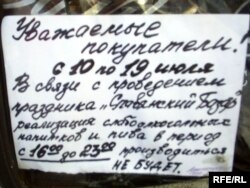 Уважаемые
покупатели!
с 10 по 19 июля
В связи с проведением
праздника "Славянский Базар
реализация слабоалкогольных
напитков и пива в период
с 16 00 до 23 00 производиться
НЕ БУДЕТ.
RFE/RL